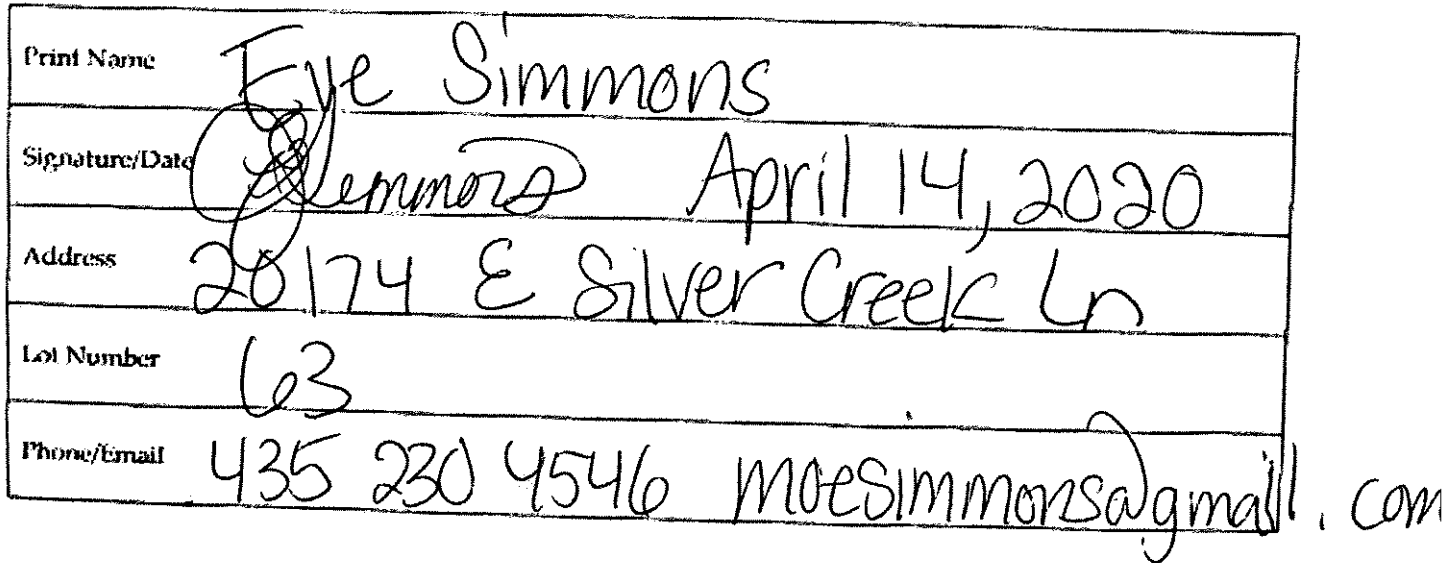 Print Name Eve Simmons
Signature/Date Simmons April 14, 2020
Address 20174 E Silver Creek Ln
Lot Number 63
Phone/Email 435 230 4546 moesimmons@gmail.com